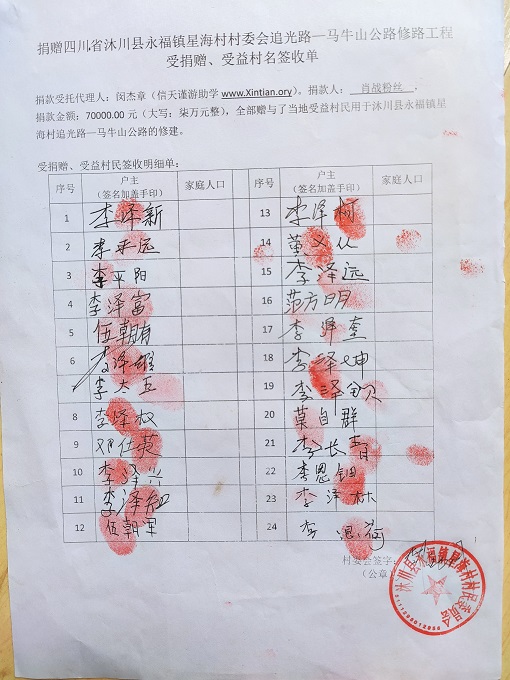 捐赠四川省沐川县永福镇星海村村委会追光路—马牛山公路修路工程
受捐赠、受益村名签收单
捐款受托代理人：闵杰章（信天谨游助学 www.Xintian.ory）。捐款人： 肖战粉丝，
捐款金额：70000.00 元（大写：柒万元整），全部赠与了当地受益村民用于沐川县永福镇星
海村追光路—马牛山公路的修建。
受捐赠、受益村民签收明细单：
序号 户主 家庭人口 序号 户主 家庭人口
（签名加盖手印） （签名加盖手印）
1 李泽新 13 李泽柯
2 李平远 14 黄文从
3 李平阳 15 李泽远
4 李泽富 16 方明
5 伍朝有 17 李泽奎
6 李泽 18 李泽坤
7 李大五 19 李泽贝
8 李泽权 20 莫自群
9 邓仕英 21 李长青
10 李泽兴 22 李恩钿
11 李泽 23 李泽林
12 伍朝军 24 李
村委会签字：
（公章）
沐川县永福镇星海村村民委员会